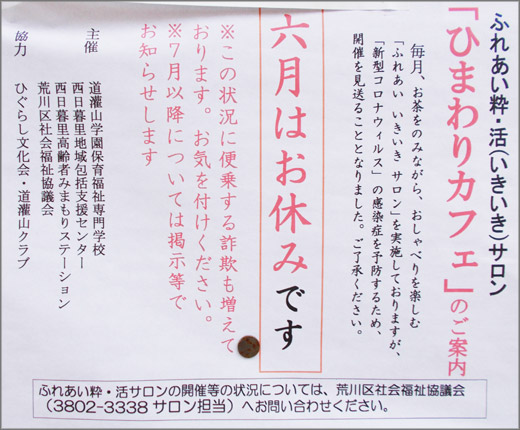 ふれあい粋・活(いきいき)サロン
「ひまわりカフェ」のご案内
毎月、お茶をのみながら、おしゃべりを楽しむ
「ふれあい いきいき サロン」を実施しておりますが、
「新型コロナウィルス」の感染症を予防するため、
開催を見送ることとなりました。ご了承ください。
六月はお休みです
※この状況に便乗する詐欺も増えて
おります。お気を付けください。
※7月以降については掲示等で
お知らせします
主催 道灌山学園保育福祉専門学校
西日暮里地域包括支援センター
西日暮里高齢者みまもりステーション
荒川区社会福祉協議会
協力 ひぐらし文化会・道灌山クラブ
ふれあい粋・活サロンの開催等の状況については、荒川区社会福祉協議会
(3802-3338 サロン担当)へお問い合わせください。